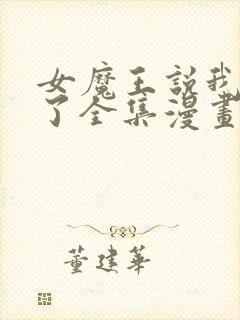 女魔王說我
了全集漫畫
董建華